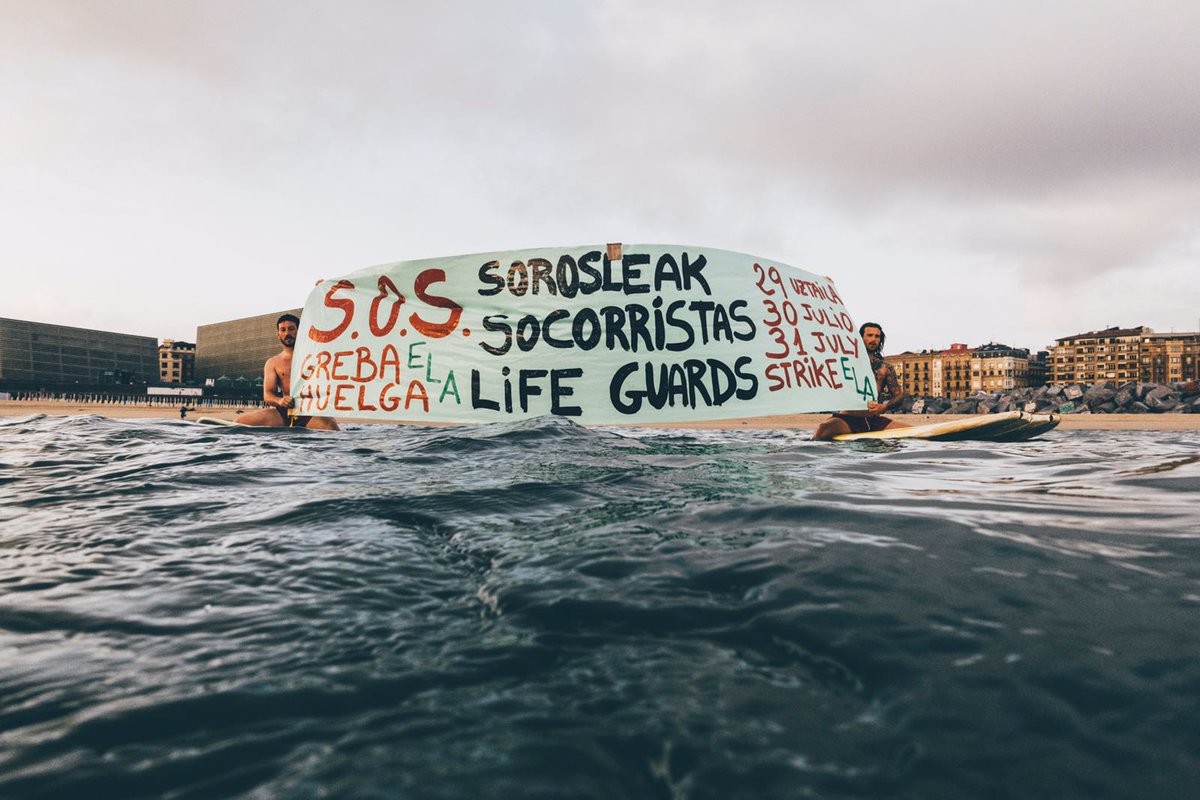 S.O.S.
GREBA
HUELGA
ELA
SOROSLEAK
SOCORRISTAS
LIFE GUARDS
29 UZTAILA
30 JULIO
31 JULY
STRIKE
ELA